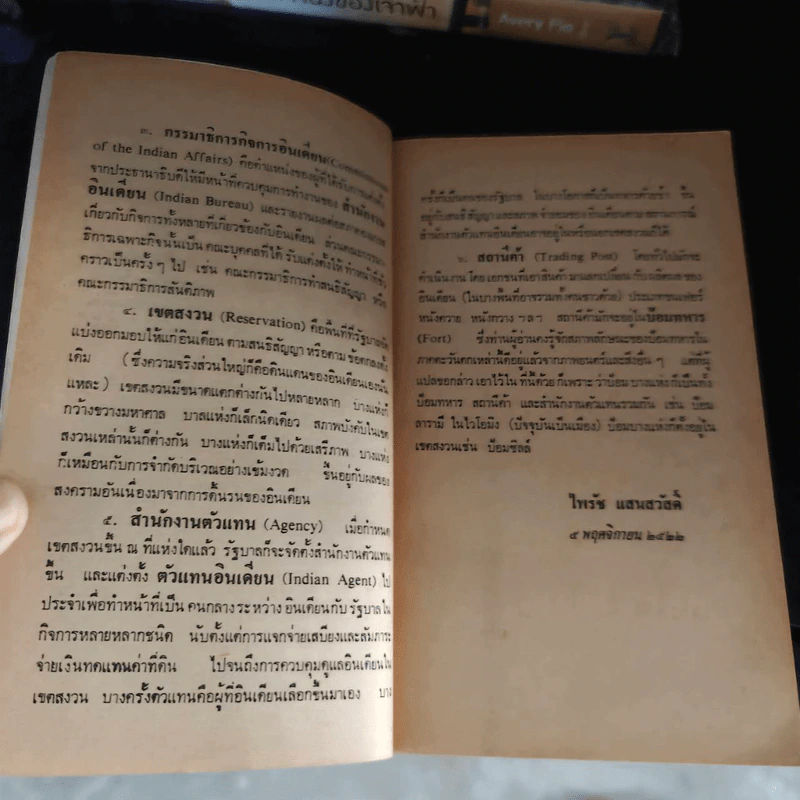 ของเจ้าฟ้า
Avery Pie
๓. กรรมาธิการกิจการอินเดียน
of the Indian Affairs) คือตำแหน่งของผู้ที่ได้รับการแต่งตั้ง
จากประธานาธิบดีให้มีหน้าที่ควบคุมการทำงานของ สำนักงาน
อินเดียน (Indian Bureau) และรายงานผลต่อสภาคองเกรส
เกี่ยวกับกิจการทั้งหลายที่เกี่ยวข้องกับอินเดียน ส่วนคณะกรรมา
ธิการเฉพาะกิจนั้นเป็น คณะบุคคลที่ได้ รับแต่งตั้งให้ ทำหน้าที่
คราวเป็นครั้งๆ ไป เช่น คณะกรรมาธิการทำสนธิสัญญา หรือ
คณะกรรมาธิการสันติภาพ
๔. เขตสงวน (Reservation) คือพื้นที่ที่รัฐบาล
แบ่งออกมอบให้แก่อินเดียน ตามสนธิสัญญา หรือตาม ข้อตกลงดั้ง
เดิม (ซึ่งความจริงส่วนใหญ่ก็คือดินแดนของอินเดียนเองนั่น
แหละ) เขตสงวนมีขนาดแตกต่างกันไปหลายหลาก บางแห่งก็
กว้างขวางมหาศาล บางแห่งก็เล็กนิดเดียว สภาพบังคับในเขต
สงวนเหล่านั้นก็ต่างกัน บางแห่งก็เต็มไปด้วยเสรีภาพ บางแห่ง
ก็เหมือนกับการจำกัดบริเวณอย่างเข้มงวด ขึ้นอยู่กับผลของ
สงครามอันเนื่องมาจากการดิ้นรนของอินเดียน
๕. สำนักงานตัวแทน (Agency) เมื่อกำหนด
เขตสงวนขึ้น ณ ที่แห่งใดแล้ว รัฐบาลก็จะจัดตั้งสำนักงานตัวแทน
ขึ้น และแต่งตั้ง ตัวแทนอินเดียน (Indian Agent) ไป
ประจำเพื่อทำหน้าที่เป็น คนกลาง ระหว่าง อินเดียนกับ รัฐบาล ใน
กิจการหลายหลากชนิด นับตั้งแต่การแจกจ่ายเสบียงและสัมภาระ
จ่ายเงินทดแทนค่าที่ดิน ไปจนถึงการควบคุมดูแลอินเดียนใน
เขตสงวน บางครั้งตัวแทนคือผู้ที่อินเดียนเลือกขึ้นมาเอง บาง
ครั้งก็เป็นคนของรัฐบาล ในบางโอกาสก็เป็นทหารด้วยซ้ำ ขึ้น
อยู่กับสนธิ สัญญา และสภาพ จำยอมของ อินเดียนตาม สถานการณ์
สำนักงานตัวแทนอินเดียนอาจอยู่ในหรือนอกเขตสงวนก็ได้
๖. สถานีค้า (Trading Post) โดยทั่วไปมักจะ
ดำเนินงาน โดย เอกชนที่เอาสินค้า มาแลกเปลี่ยน กับ ผลิตผล ของ
อินเดียน (ในบางพื้นที่อาจรวมทั้งคนขาวด้วย) ประเภทขนเฟอร์
หนังควาย หนังกวาง ฯลฯ สถานีค้ามักจะอยู่ในป้อมทหาร
(Fort) ซึ่งท่านผู้อ่านคงรู้จักสภาพลักษณะของป้อมทหารใน
ภาคตะวันตกเหล่านี้ดีอยู่แล้วจากภาพยนตร์และสิ่งอื่น ๆ แต่ที่ผู้
แปลขอกล่าว เอาไว้ใน ที่นี้ด้วย ก็เพราะ ว่าป้อม บางแห่งก็เป็นทั้ง
ป้อมทหาร สถานีค้า และสำนักงานตัวแทนรวมกัน เช่น ป้อม
ลารามี ในไวโอมิง (ปัจจุบันเป็นเมือง) ป้อมบางแห่งก็ตั้งอยู่ใน
เขตสงวนเช่น ป้อมซิลล์
ไพรัช แสนสวัสดิ์
๕ พฤศจิกายน ๒๕๒๒